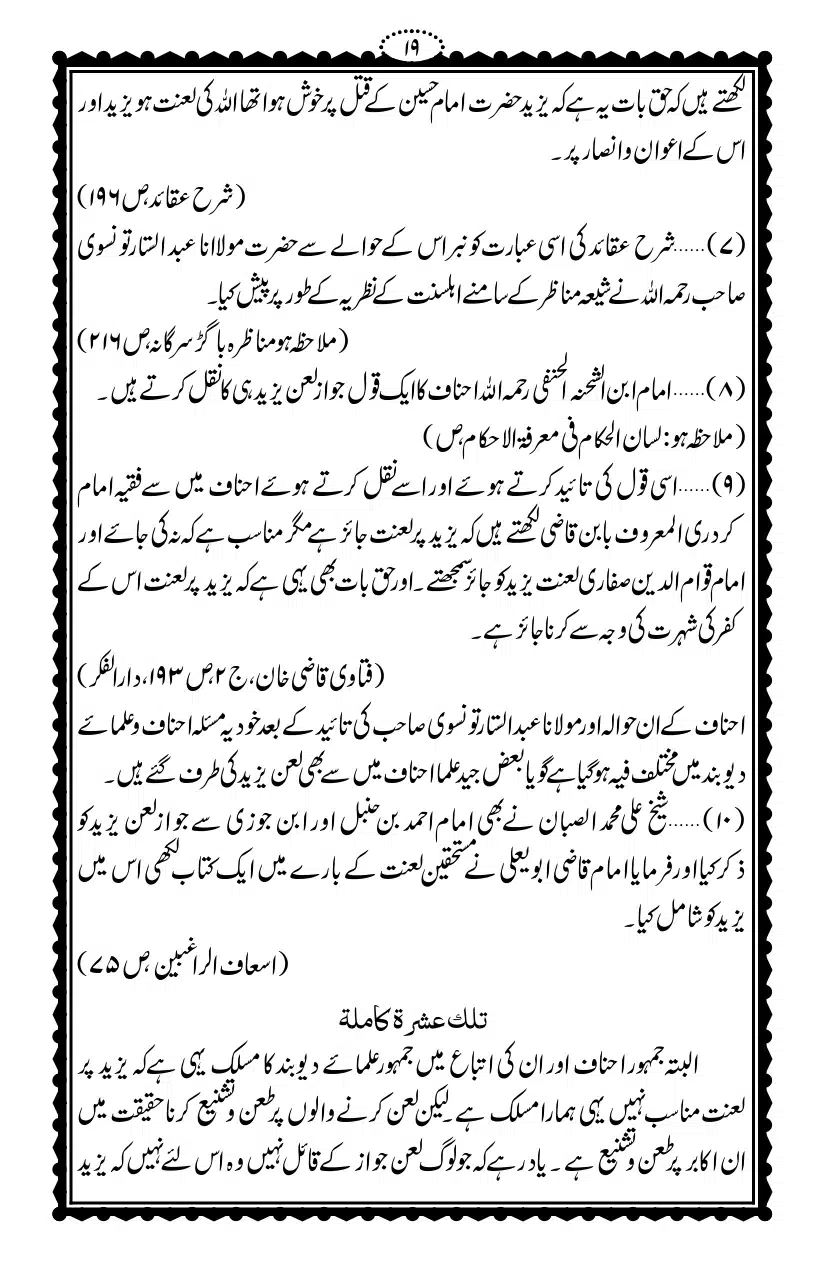 ۱۹
لکھتے ہیں کہ حق بات یہ ہے کہ یزید حضرت امام حسین کے قتل پر خوش ہوا تھا اللہ کی لعنت ہو یزید اور
اس کے اعوان وانصار پر۔
(شرح عقائد،ص۱۹۶)
(۷)......شرح عقائد کی اسی عبارت کو نبراس کے حوالے سے حضرت مولاانا عبد الستار تونسوی
صاحب رحمہ اللہ نے شیعہ مناظر کے سامنے اہلسنت کے نظریہ کے طور پر پیش کیا۔
(ملاحظہ ہو مناظرہ باگڑ سرگانہ،ص۲۱۶)
(۸)......امام ابن الشحنہ الحنفی رحمہ اللہ احناف کا ایک قول جواز لعن یزید ہی کا نقل کرتے ہیں۔
(ملاحظہ ہو: لسان الحکام فی معرفۃ الاحکام،ص)
(۹)......اسی قول کی تائید کرتے ہوئے اور اسے نقل کرتے ہوئے احناف میں سے فقیہ امام
کردری المعروف بابن قاضی لکھتے ہیں کہ یزید پر لعنت جائز ہے مگر مناسب ہے کہ نہ کی جائے اور
امام قوام الدین صفاری لعنت یزید کو جائز سمجھتے۔اور حق بات بھی یہی ہے کہ یزید پر لعنت اس کے
کفر کی شہرت کی وجہ سے کرنا جائز ہے۔
(فتاوی قاضی خان، ج۲،ص۱۹۳، دار الفکر)
احناف کے ان حوالہ اور مولانا عبد الستار تونسوی صاحب کی تائید کے بعد خود یہ مسئلہ احناف وعلمائے
دیوبند میں مختلف فیہ ہو گیا ہے گویا بعض جید علما احناف میں سے بھی لعن یزید کی طرف گئے ہیں۔
(۱۰)......شیخ علی محمد الصبان نے بھی امام احمد بن حنبل اور ابن جوزی سے جواز لعن یزید کو
ذکر کیا اور فرمایا امام قاضی ابو یعلی نے مستحقین لعنت کے بارے میں ایک کتاب لکھی اس میں
یزید کو شامل کیا۔
(اسعاف الراغبین ص۷۵)
تلك عشرة كاملة
البتہ جمہور احناف اور ان کی اتباع میں جمہور علمائے دیوبند کا مسلک یہی ہے کہ یزید پر
لعنت مناسب نہیں یہی ہمارا مسلک ہے۔لیکن لعن کرنے والوں پر طعن وتشنیع کرنا حقیقت میں
ان اکابر پر طعن وتشنیع ہے۔ یاد رہے کہ جو لوگ لعن جواز کے قائل نہیں وہ اس لئے نہیں کہ یزید